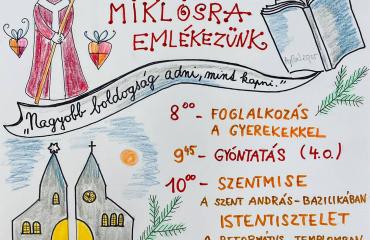 MIKLÓSRA
EMLÉKEZÜNK
„Nagyobb boldogság adni, mint kapni."
8⁰⁰ - FOGLALKOZÁS
A GYEREKEKKEL
9⁴⁵ - GYÓNTATÁS (4.o.)
10⁰⁰ - SZENTMISE
A SZENT ANDRÁS-BAZILIKÁBAN
ISTENTISZTELET
A REFORMÁTUS TEMPLOMBAN